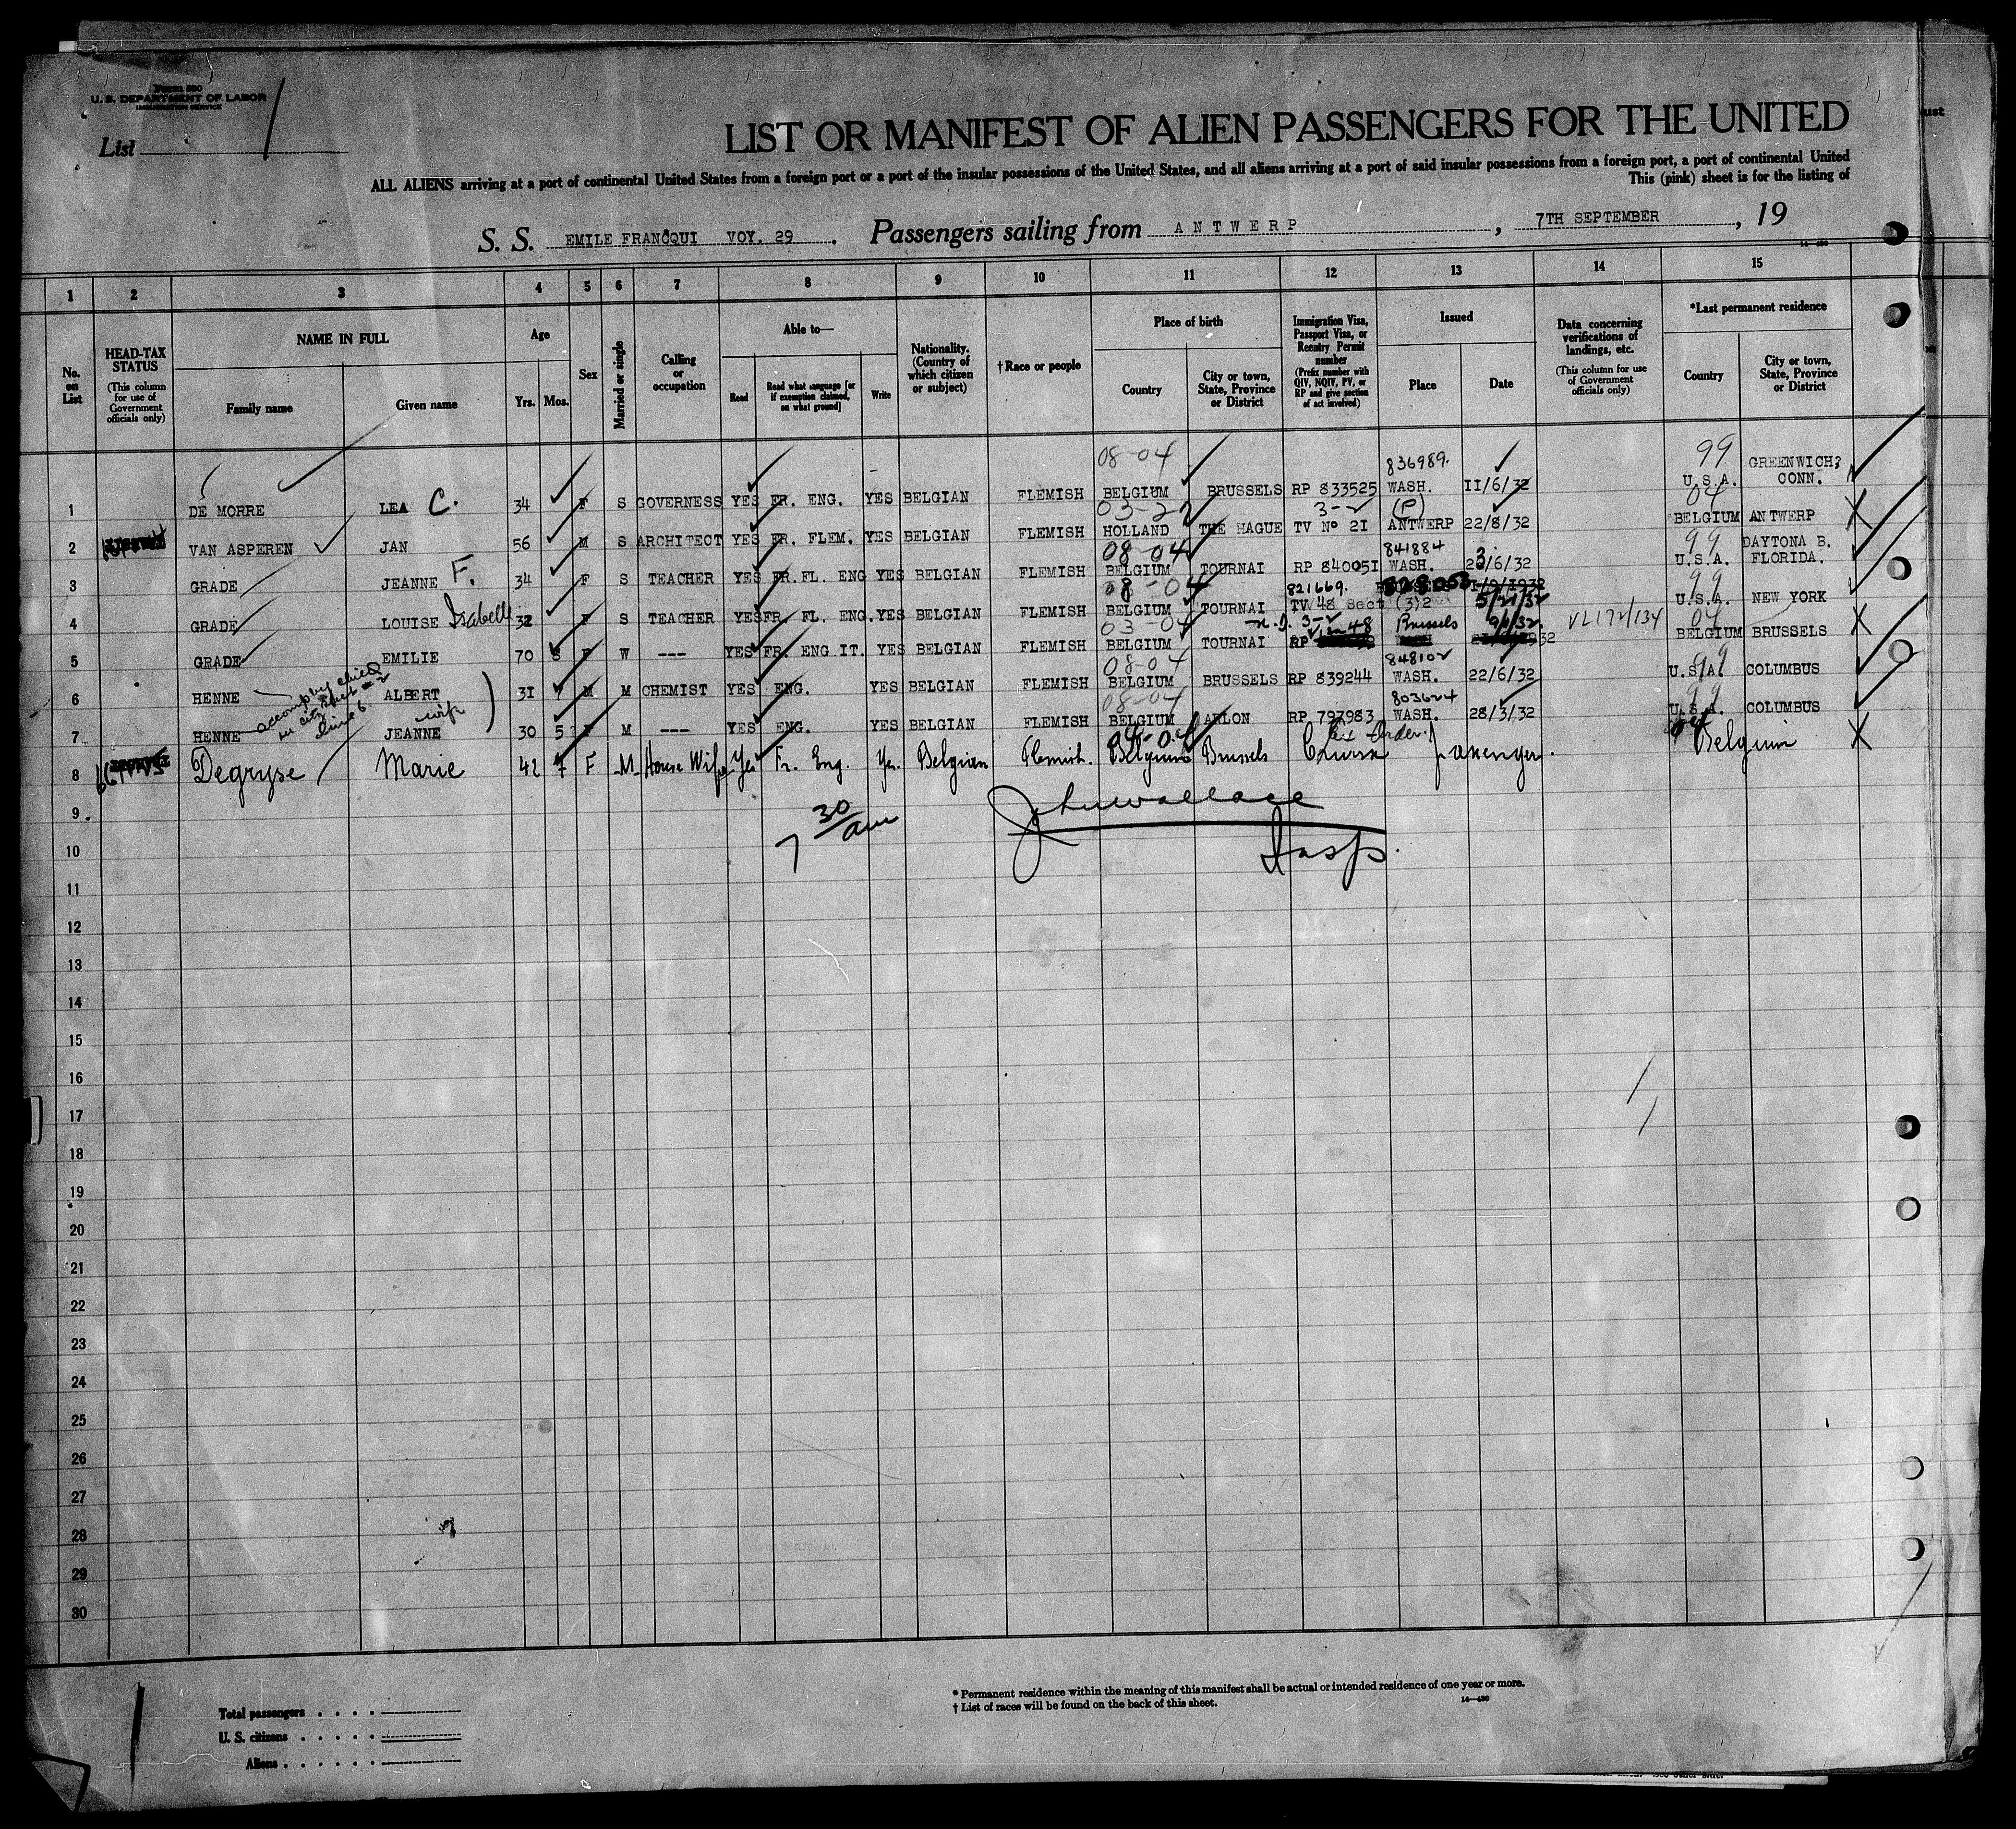 Form 500
U. S. DEPARTMENT OF LABOR
IMMIGRATION SERVICE
List 1
LIST OR MANIFEST OF ALIEN PASSENGERS FOR THE UNITED
ALL ALIENS arriving at a port of continental United States from a foreign port or a port of the insular possessions of the United States, and all aliens arriving at a port of said insular possessions from a foreign port, a port of continental United
This (pink) sheet is for the listing of
S. S. EMILE FRANCQUI VOY. 29. Passengers sailing from ANTWERP, 7TH SEPTEMBER, 19
1 2 3 4 5 6 7 8 9 10 11 12 13 14 15
No. on List
HEAD-TAX STATUS (This column for use of Government officials only)
NAME IN FULL
Family name Given name
Age
Yrs. Mos.
Sex
Married or single
Calling or occupation
Able to—
Read Read what language [or if exemption claimed, on what ground] Write
Nationality. (Country of which citizen or subject)
†Race or people
Place of birth
Country City or town, State, Province or District
Immigration Visa, Passport Visa, or Reentry Permit number (Prefix number with QIV, NQIV, PV, or RP and give section of act involved)
Issued
Place Date
Data concerning verifications of landings, etc. (This column for use of Government officials only)
*Last permanent residence
Country City or town, State, Province or District
08-04 836989. 99 GREENWICH,
1 DE MORRE LEA C. 34 F S GOVERNESS YES FR. ENG. YES BELGIAN FLEMISH BELGIUM BRUSSELS RP 833525 WASH. 11/6/32 U.S.A. CONN.
03-22 3-2 (P) 04
2 VAN ASPEREN JAN 56 M S ARCHITECT YES FR. FLEM. YES BELGIAN FLEMISH HOLLAND THE HAGUE TV No 21 ANTWERP 22/8/32 BELGIUM ANTWERP
08-04 841884 99 DAYTONA B.
3 GRADE JEANNE F. 34 F S TEACHER YES FR. FL. ENG YES BELGIAN FLEMISH BELGIUM TOURNAI RP 840051 WASH. 23/6/32 U.S.A. FLORIDA.
08-04 821669. 828053 1/9/1932 99
4 GRADE LOUISE Isabelle 32 F S TEACHER YES FR. FL. ENG. YES BELGIAN FLEMISH BELGIUM TOURNAI TV 48 Sect (3)2 5/21/32 VL172/134 U.S.A. NEW YORK
03-04 3-2 04
5 GRADE EMILIE 70 F W --- YES FR. ENG IT. YES BELGIAN FLEMISH BELGIUM TOURNAI RP 48 Brussels 9/1/32 BELGIUM BRUSSELS
08-04 848102 99
6 HENNE ALBERT 31 M M CHEMIST YES ENG. YES BELGIAN FLEMISH BELGIUM BRUSSELS RP 839244 WASH. 22/6/32 U.S.A. COLUMBUS
accomp by child
line 6
wife
08-04 803624 99
7 HENNE JEANNE 30 5 F M --- YES ENG. YES BELGIAN FLEMISH BELGIUM ARLON RP 797983 WASH. 28/3/32 U.S.A. COLUMBUS
04-04 04
8 Degryse Marie 42 7 F M House Wife Yes Fr. Eng. Yes. Belgian Flemish. Belgium Brussels passenger. Belgium
9
7 30/am John Wallace
10 Insp.
11
12
13
14
15
16
17
18
19
20
21
22
23
24
25
26
27
28
29
30
Total passengers
U. S. citizens
Aliens
* Permanent residence within the meaning of this manifest shall be actual or intended residence of one year or more.
† List of races will be found on the back of this sheet. 14—430